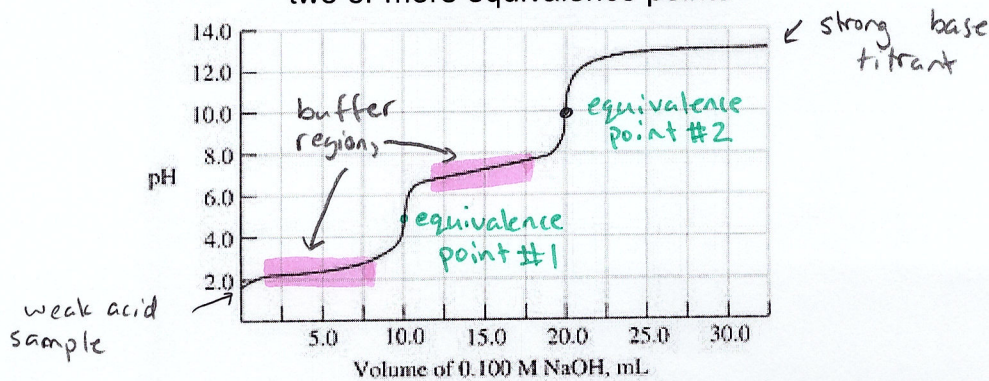 two or more equivalence points
14.0
12.0
10.0
8.0
6.0
4.0
2.0
pH
5.0
10.0
15.0
20.0
25.0
30.0
Volume of 0.100 M NaOH, mL
strong base
titrant
buffer
regions
equivalence
point #2
equivalence
point #1
weak acid
sample